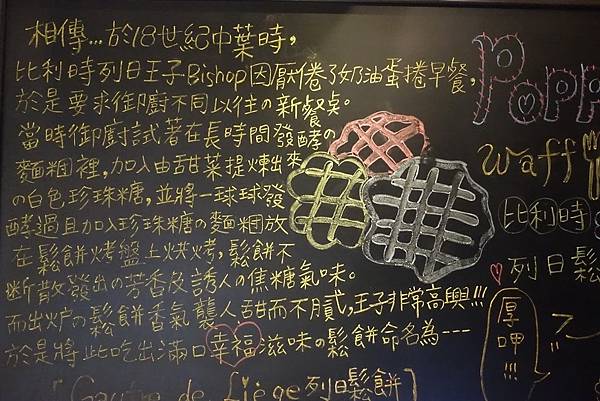 相傳...於18世紀中葉時,
比利時列日王子Bishop因厭倦了奶油蛋捲早餐,
於是要求御廚不同以往の新餐点。
當時御廚試著在長時間發酵の
麵糰裡,加入由甜菜提煉出來
の白色珍珠糖,並將一球球發
酵過且加入珍珠糖の麵糰放
在鬆餅烤盤上烘烤,鬆餅不
斷散發出の芳香及誘人の焦糖氣味。
而出炉の鬆餅香氣襲人甜而不膩,王子非常高興!!!
於是將此吃出滿口幸福滋味の鬆餅命名為---
「Gaufre de Liège列日鬆餅」
Popp
waff
比利時
列日鬆
厚呷!!!